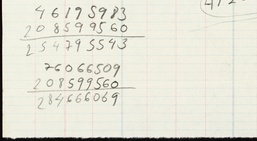 46195983
208599560
254795543
76066509
208599560
284666069